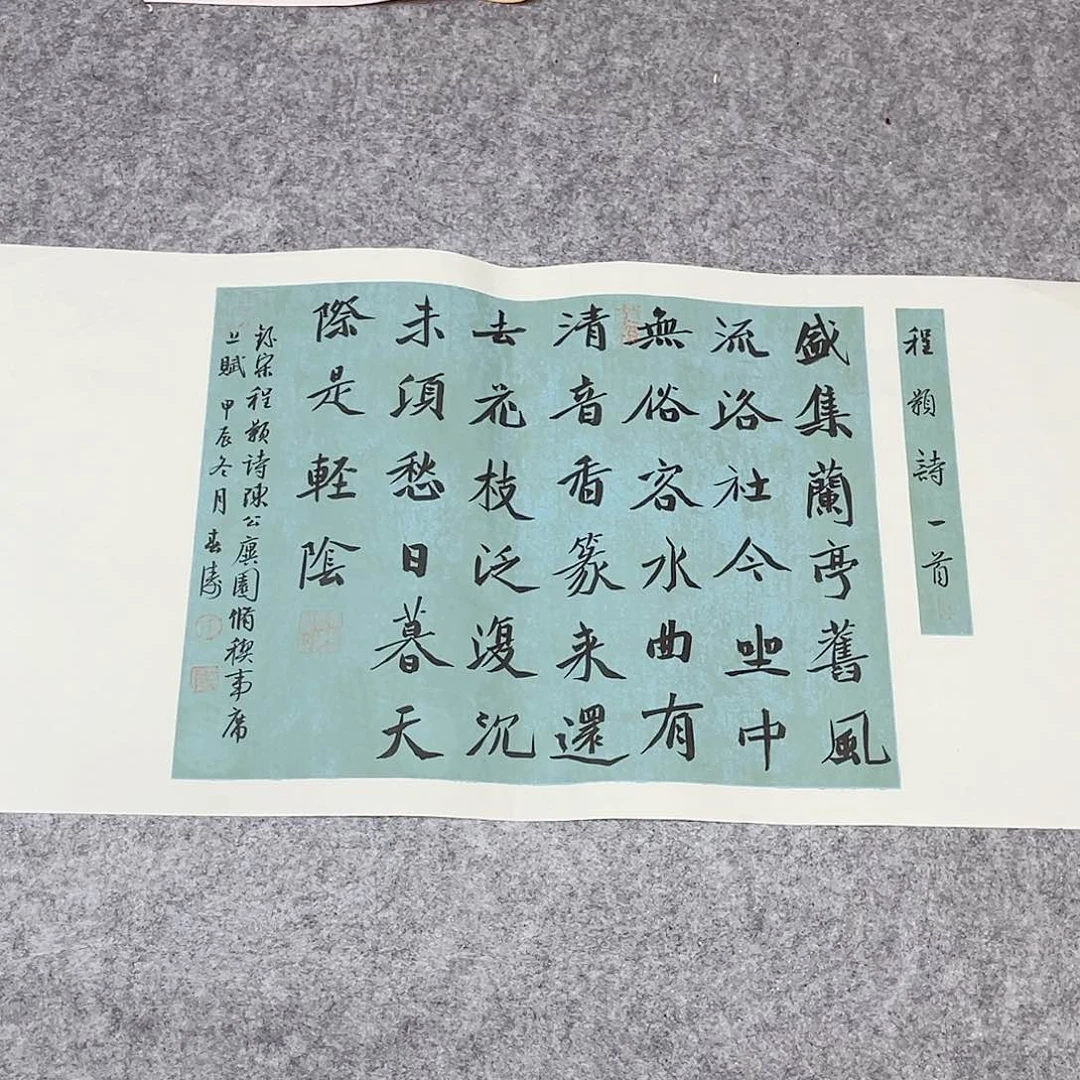 程顥詩一首
盛集蘭亭舊風
流洛社今坐中
無俗客水曲有
清音香篆来還
去花枝泛復沉
未須愁日暮天
際是軽陰
録宋程顥詩陳公廙園脩禊事席
上賦 甲辰冬月 春濤